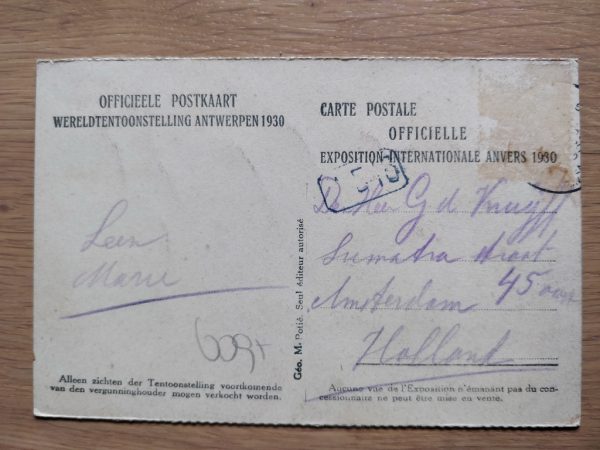 OFFICIEELE POSTKAART
WERELDTENTOONSTELLING ANTWERPEN 1930
Leen
Marie
Alleen zichten der Tentoonstelling voortkomende
van den vergunninghouder mogen verkocht worden.
Géo. M. Potié. Seul éditeur autorisé
CARTE POSTALE
OFFICIELLE
EXPOSITION INTERNATIONALE ANVERS 1930
De Heer G d Kruyff
Sumatra straat
45
Amsterdam
Holland
Aucune vue de l'Exposition n'émanant pas du con-
cessionnaire ne peut être mise en vente.